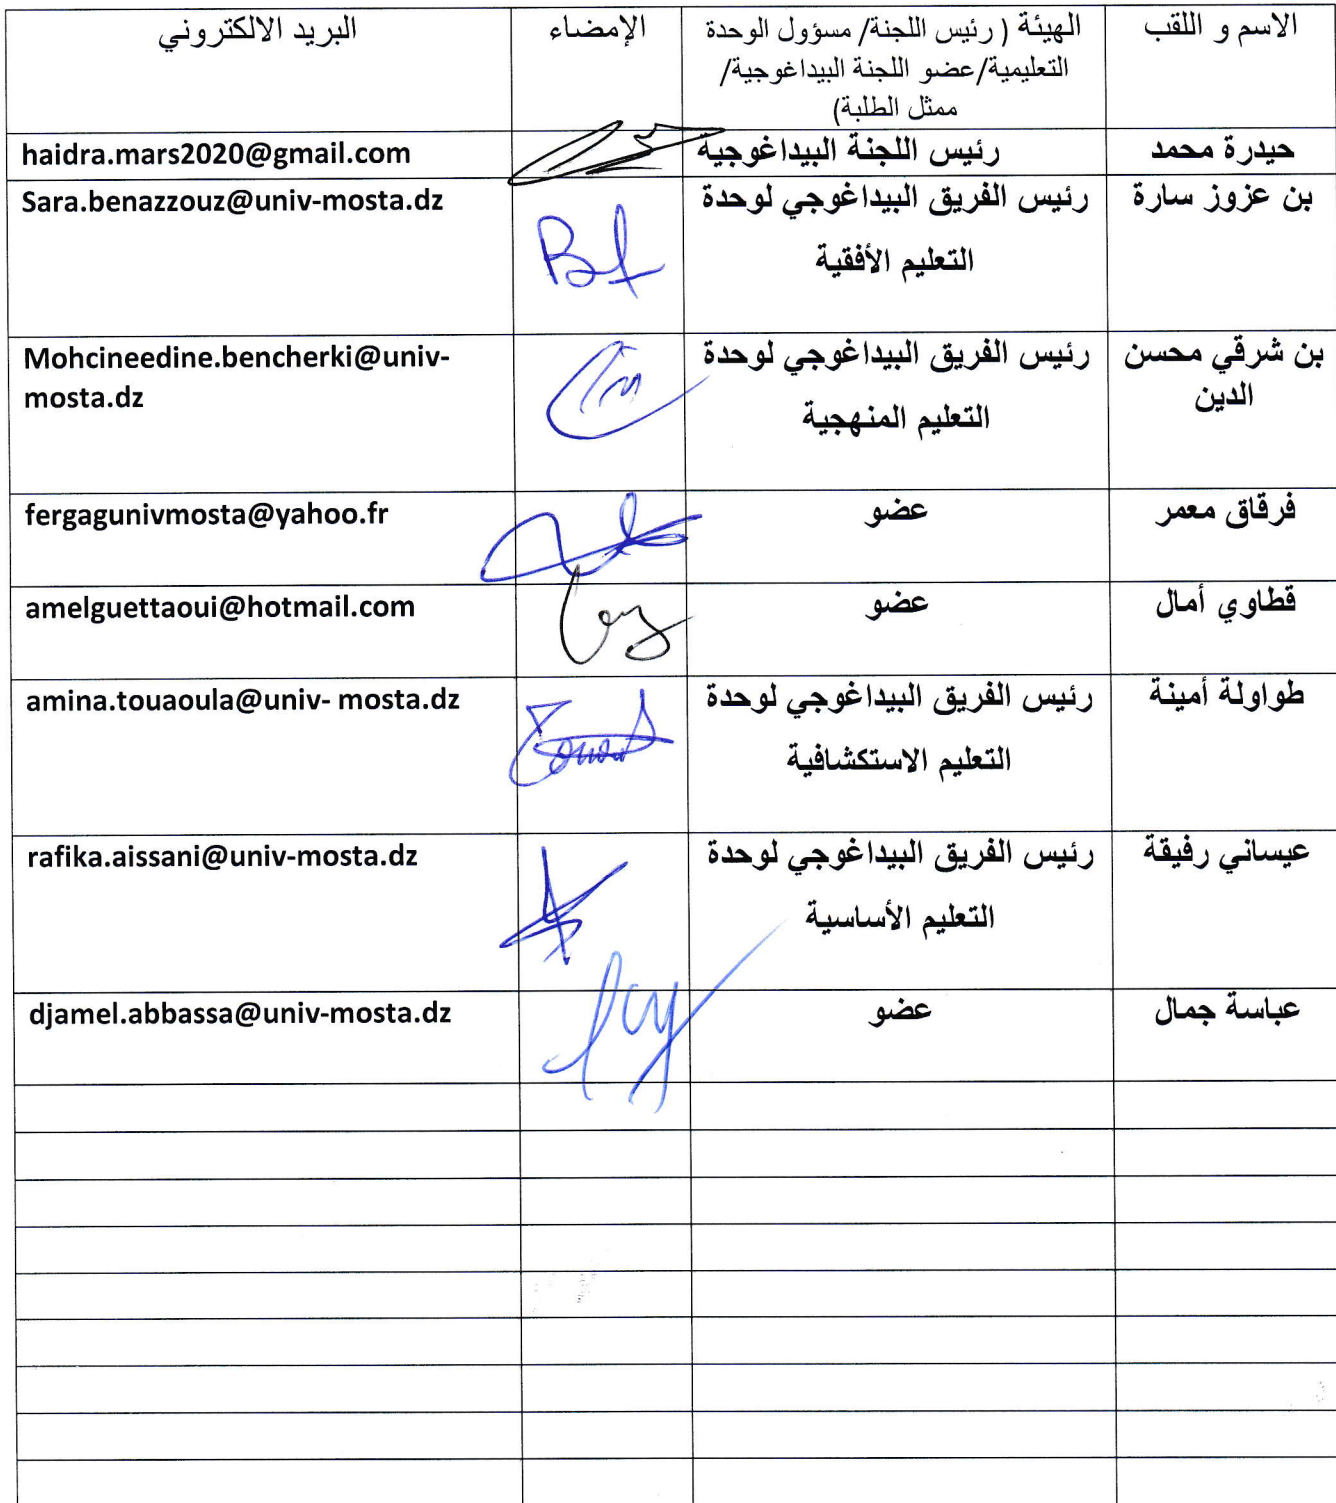 الاسم و اللقب
الهيئة ( رئيس اللجنة/ مسؤول الوحدة
التعليمية/عضو اللجنة البيداغوجية/
ممثل الطلبة)
الإمضاء
البريد الالكتروني
حيدرة محمد
رئيس اللجنة البيداغوجية
haidra.mars2020@gmail.com
بن عزوز سارة
رئيس الفريق البيداغوجي لوحدة
التعليم الأفقية
Sara.benazzouz@univ-mosta.dz
بن شرقي محسن
الدين
رئيس الفريق البيداغوجي لوحدة
التعليم المنهجية
Mohcineedine.bencherki@univ-
mosta.dz
فرقاق معمر
عضو
fergagunivmosta@yahoo.fr
قطاوي أمال
عضو
amelguettaoui@hotmail.com
طواولة أمينة
رئيس الفريق البيداغوجي لوحدة
التعليم الاستكشافية
amina.touaoula@univ- mosta.dz
عيساني رفيقة
رئيس الفريق البيداغوجي لوحدة
التعليم الأساسية
rafika.aissani@univ-mosta.dz
عباسة جمال
عضو
djamel.abbassa@univ-mosta.dz